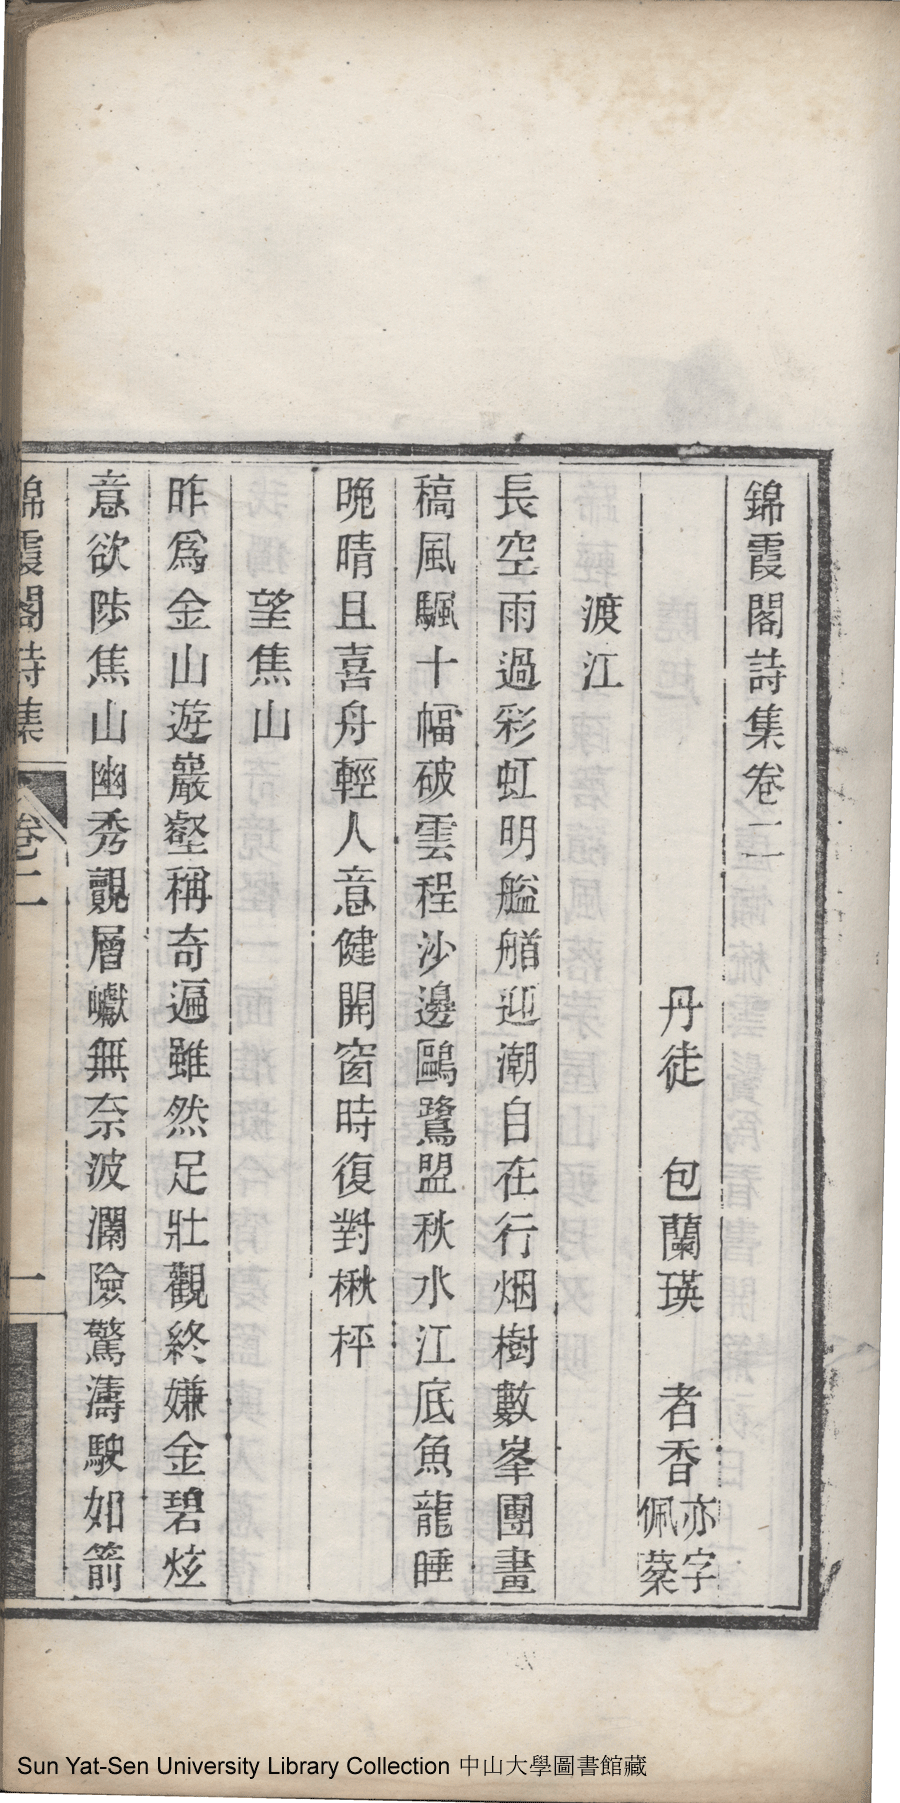 錦霞閣詩集卷二
丹徒 包蘭瑛 者香 亦字佩棻
渡江
長空雨過彩虹明艦艏迎潮自在行烟樹數峯團畫
稿風颿十幅破雲程沙邊鷗鷺盟秋水江底魚龍睡
晚晴且喜舟輕人意健開窗時復對楸枰
望焦山
昨爲金山遊巖壑稱奇遍雖然足壯觀終嫌金碧炫
意欲陟焦山幽秀覿層巘無奈波瀾險驚濤駛如箭
錦霞閣詩集 卷二 一
Sun Yat-Sen University Library Collection 中山大學圖書館藏